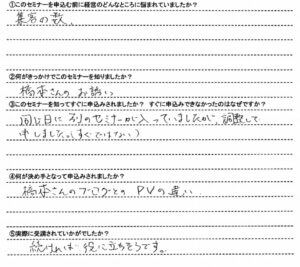 ①このセミナーを申込む前に経営のどんなところに悩まれていましたか？
集客の数、
②何がきっかけでこのセミナーを知りましたか？
橋本さんの お誘い
③このセミナーを知ってすぐに申込みされましたか？ すぐに申込みできなかったのはなぜですか？
同じ日に 別のセミナーが入っていましたが、調整して
申しました。（すぐではない）
④何が決め手となって申込みされましたか？
橋本さんのブログとの PVの違い
⑤実際に受講されていかがでしたか？
続ければ 役に立ちそうです。